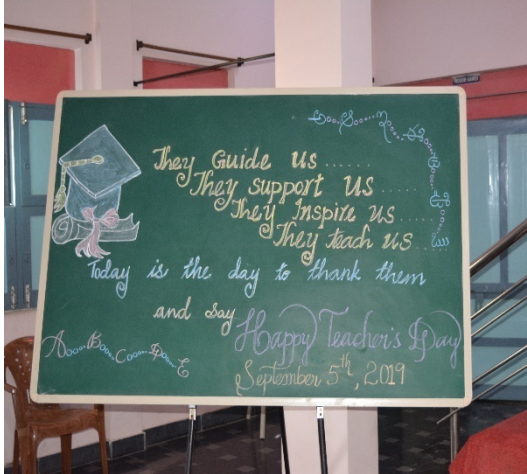 They Guide us ......
They support us .....
They Inspire us .....
They teach us ...
Today is the day to thank them
and say
Happy Teacher's Day
September 5th, 2019
A ooo B ooo C ooo D ooo E